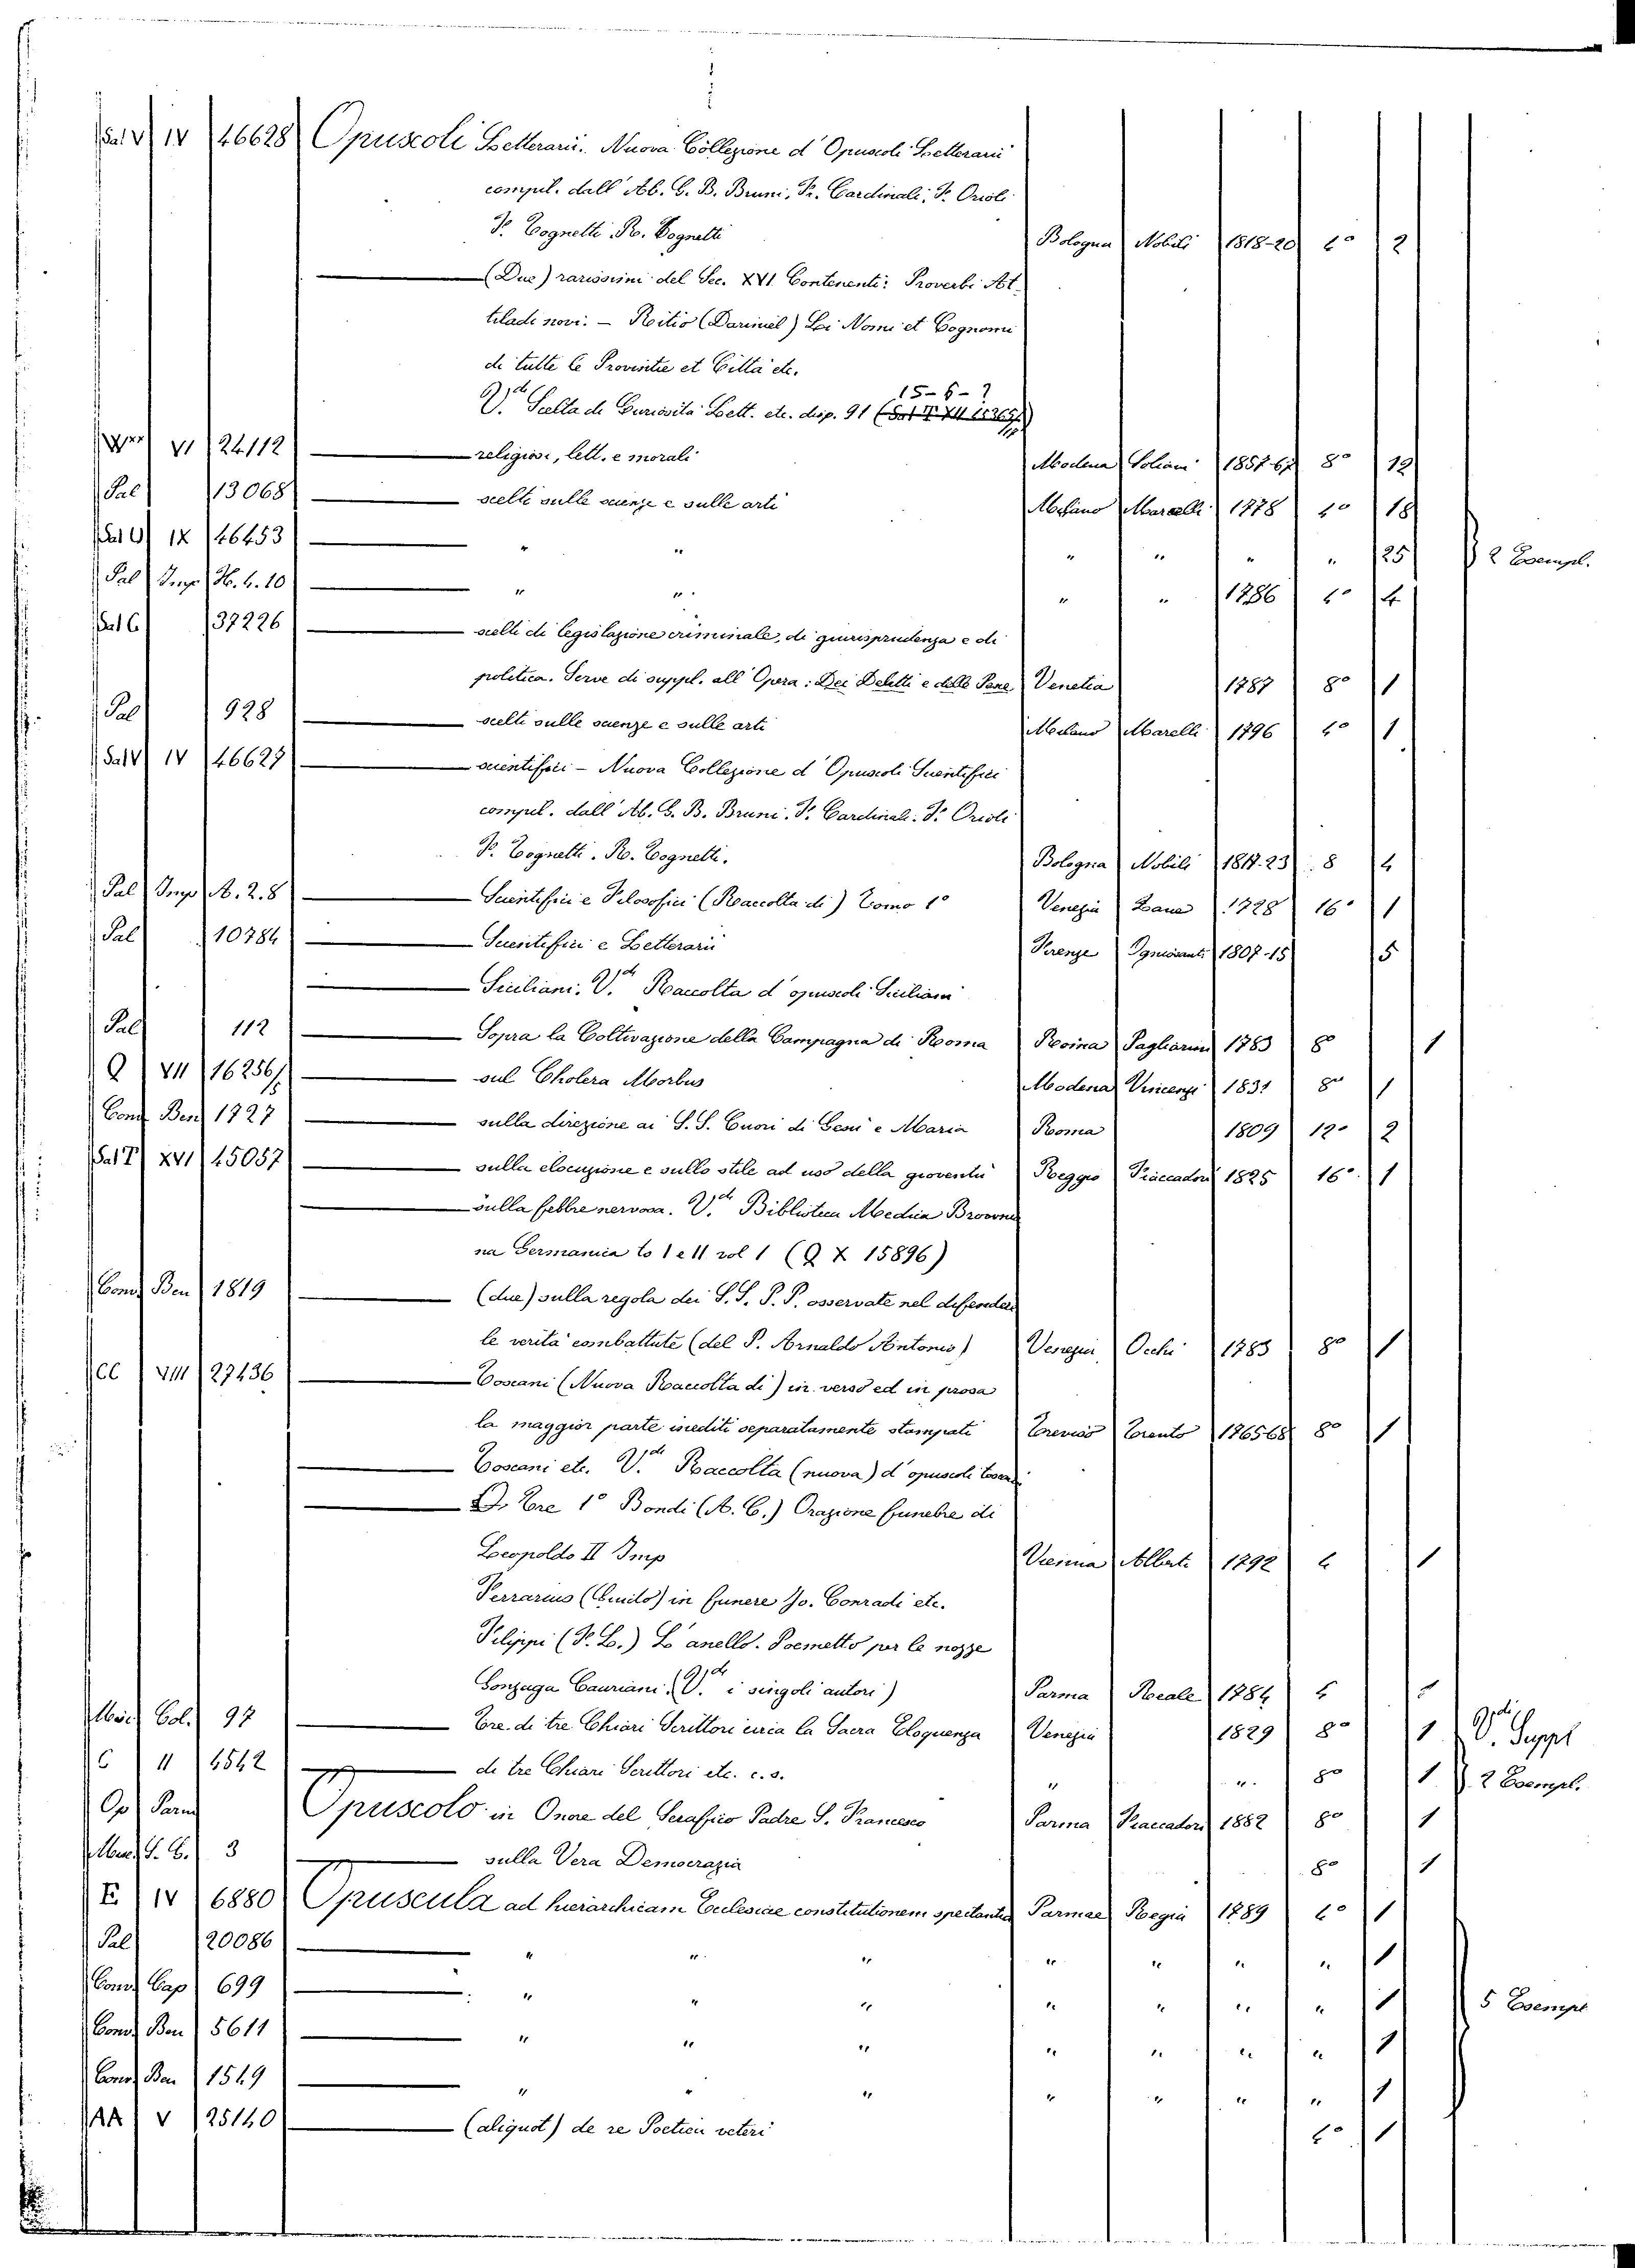 Sal V IV 46628 Opuscoli Letterari. Nuova Collezione d'Opuscoli Letterari
compil. dall'Ab. G. B. Bruni, Fr. Cardinali, F. Orioli
F. Cognetti R. Cognetti Bologna Nobili 1818-20 4° 2
(Due) rarissimi del Sec. XVI Contenenti: Proverbi At
tiladi novi. - Roitio (Dariniel) Li Nomi et Cognomi
di tutte le Provintie et Città etc.
15-6-7
V.di Scelta di Curiosità Lett. etc. disp. 91
VI 24112 religiosi, lett. e morali Modena Soliani 1857-67 8° 12
Pal 13068 scelti sulle scienze e sulle arti Milano Marcelli 1778 4° 18
IX 46453 " " " " " " 25 2 Esempl.
Pal Imp H. 4. 10 " " " " 1786 4° 4
Sal C 37226 scelti di legislazione criminale, di giurisprudenza e di
politica. Serve di suppl. all'Opera: Dei Delitti e delle Pene Venetia 1787 8° 1
Pal 928 scelti sulle scienze e sulle arti Milano Marelli 1796 4° 1
Sal V IV 46627 scientifici - Nuova Collezione d'Opuscoli Scientifici
compil. dall'Ab. G. B. Bruni. F. Cardinali. F. Orioli
F. Cognetti. R. Cognetti. Bologna Nobili 1817-23 8 4
Pal Imp A. 2. 8 Scientifici e Filosofici (Raccolta di) Tomo 1° Venezia Zane 1728 16° 1
Pal 10784 Scientifici e Letterarii Firenze 1807-15 5
Siciliani. V.di Raccolta d'opuscoli Siciliani
Pal 112 Sopra la Coltivazione della Campagna di Roma Roma Pagliarini 1783 8° 1
Q VII 16256 sul Cholera Morbus Modena Vincenzi 1831 8° 1
Conv Ben 1727 sulla direzione ai S. S. Cuori di Gesù e Maria Roma 1809 12° 2
Sal T XVI 45057 sulla elocuzione e sullo stile ad uso della gioventù Reggio Fiaccadori 1825 16° 1
sulla febbre nervosa. V.di Biblioteca Medica Browni
na Germanica to 1 e 11 vol 1 (Q X 15896)
Conv Ben 1819 (due) sulla regola dei S. S. P. P. osservate nel difendere
le verità combattute (del P. Arnaldo Antonio) Venezia Occhi 1783 8° 1
CC VIII 27436 Toscani (Nuova Raccolta di) in verso ed in prosa
la maggior parte inediti separatamente stampati Treviso Trento 1765-68 8° 1
Toscani etc. V.di Raccolta (nuova) d'opuscoli toscani
Tre 1° Bondi (A. C.) Orazione funebre di
Leopoldo II Imp Vienna Alberti 1792 4 1
Ferrarius (Guido) in funere Jo. Conradi etc.
Filippi (F. L.) L'anello. Poemetto per le nozze
Gonzaga Cauriani. (V.di i singoli autori) Parma Reale 1784 4 1
Misc Col. 97 Tre di tre Chiari Scrittori circa la Sacra Eloquenza Venezia 1829 8° 1 V.di Suppl
C II 4542 di tre Chiari Scrittori etc. c. s. " " 8° 1 2 Esempl.
Op Parm Opuscolo in Onore del Serafico Padre S. Francesco Parma Fiaccadori 1882 8° 1
3 sulla Vera Democrazia 8° 1
E IV 6880 Opuscula ad hierarchicam Ecclesiae constitutionem spectantia Parmae Regia 1789 4° 1
Pal 20086 " " " " " " " 1
Conv Cap 699 " " " " " " " 1 5 Esempl
Conv Ben 5611 " " " " " " " 1
Conv Ben 1549 " " " " " " " 1
AA V 25140 (aliquot) de re Poetica veteri 4° 1